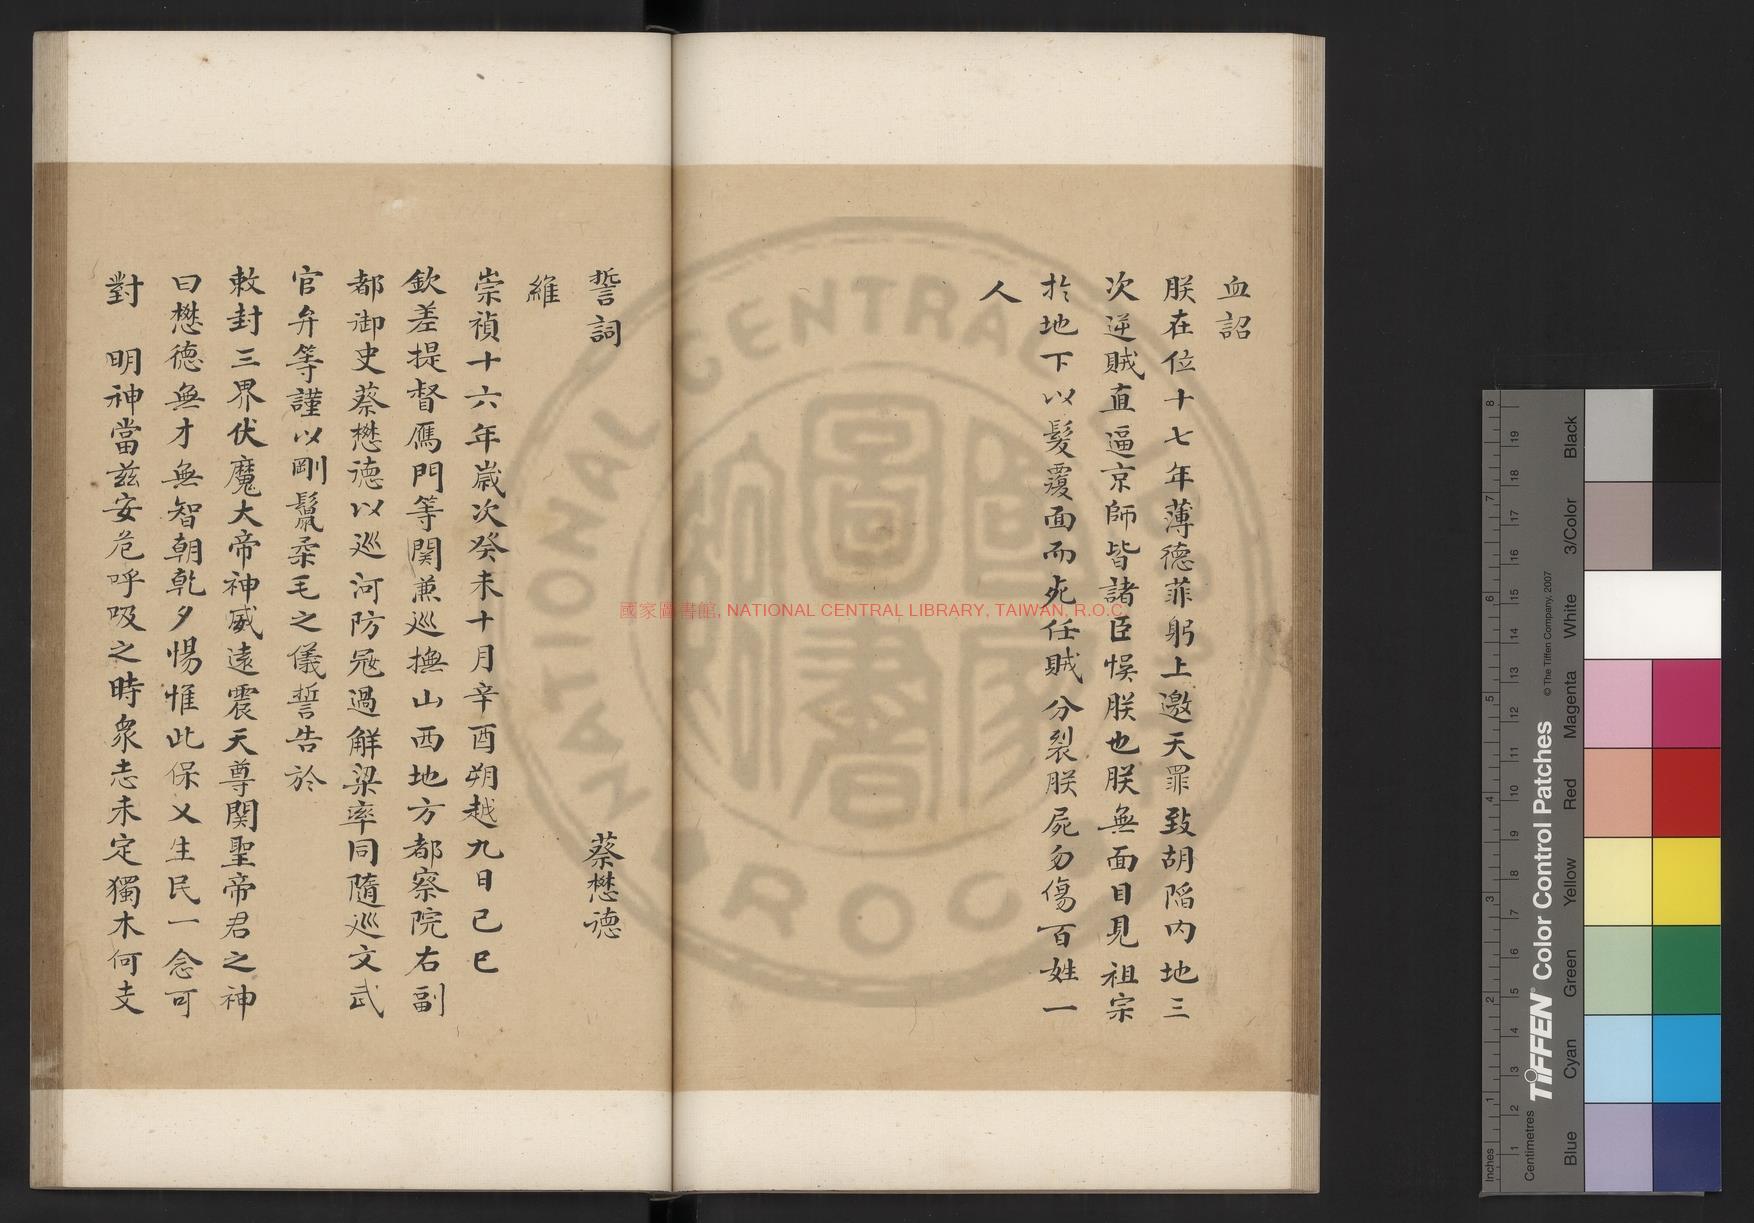 血詔
朕在位十七年薄德菲躬上邀天罪致胡陷内地三
次逆賊直逼京師皆諸臣悞朕也朕無面目見祖宗
於地下以髮覆面而死任賊分裂朕屍勿傷百姓一
人
誓詞 蔡懋德
維
崇禎十六年歲次癸未十月辛酉朔越九日己巳
欽差提督鴈門等関兼巡撫山西地方都察院右副
都御史蔡懋德以巡河防𡨥過解梁率同隨巡文武
官弁等謹以剛鬣柔毛之儀誓告於
敕封三界伏魔大帝神威遠震天尊関聖帝君之神
曰懋德無才無智朝乾夕惕惟此保乂生民一念可
對 明神當兹安危呼吸之時衆志未定獨木何支
國家圖書館, NATIONAL CENTRAL LIBRARY, TAIWAN, R.O.C.
NATIONAL CENTRAL
R.O.C.
Inches
Centimetres
TIFFEN® Color Control Patches
© The Tiffen Company, 2007
Blue
Cyan
Green
Yellow
Red
Magenta
White
3/Color
Black